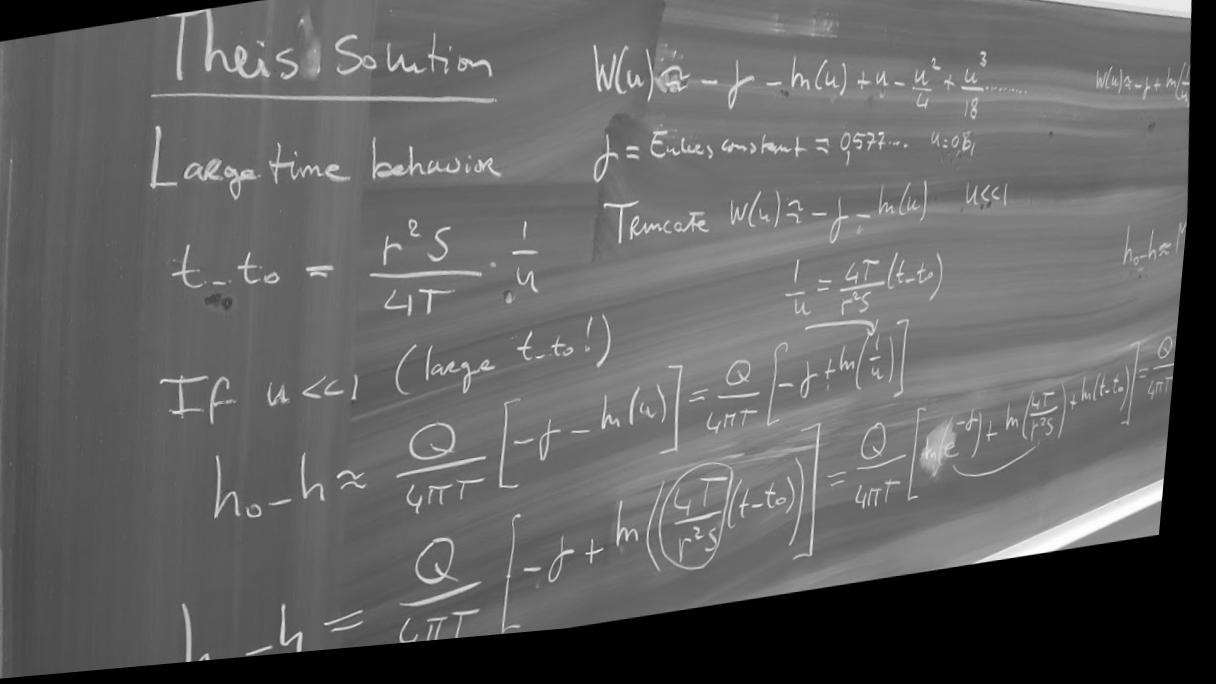 Theis Solution
Large time behavior
t-t₀ = r²S/4T · 1/u
If u <<1 (large t-t₀!)
h₀-h ≈ Q/4πT [-γ - ln(u)] = Q/4πT [-γ + ln(1/u)]
h -h = Q/4πT [-γ + ln((4T/r²S)(t-t₀))] = Q/4πT [ln(e^-γ) + ln(4T/r²S) + ln(t-t₀)] = Q/4πT
W(u) ≈ -γ - ln(u) + u - u²/4 + u³/18 ........
γ = Eulers constant = 0,577...
Truncate W(u) ≈ -γ - ln(u) u<<1
1/u = 4T/r²S (t-t₀)
W(u) ≈ -γ + ln(1/u
h₀-h ≈